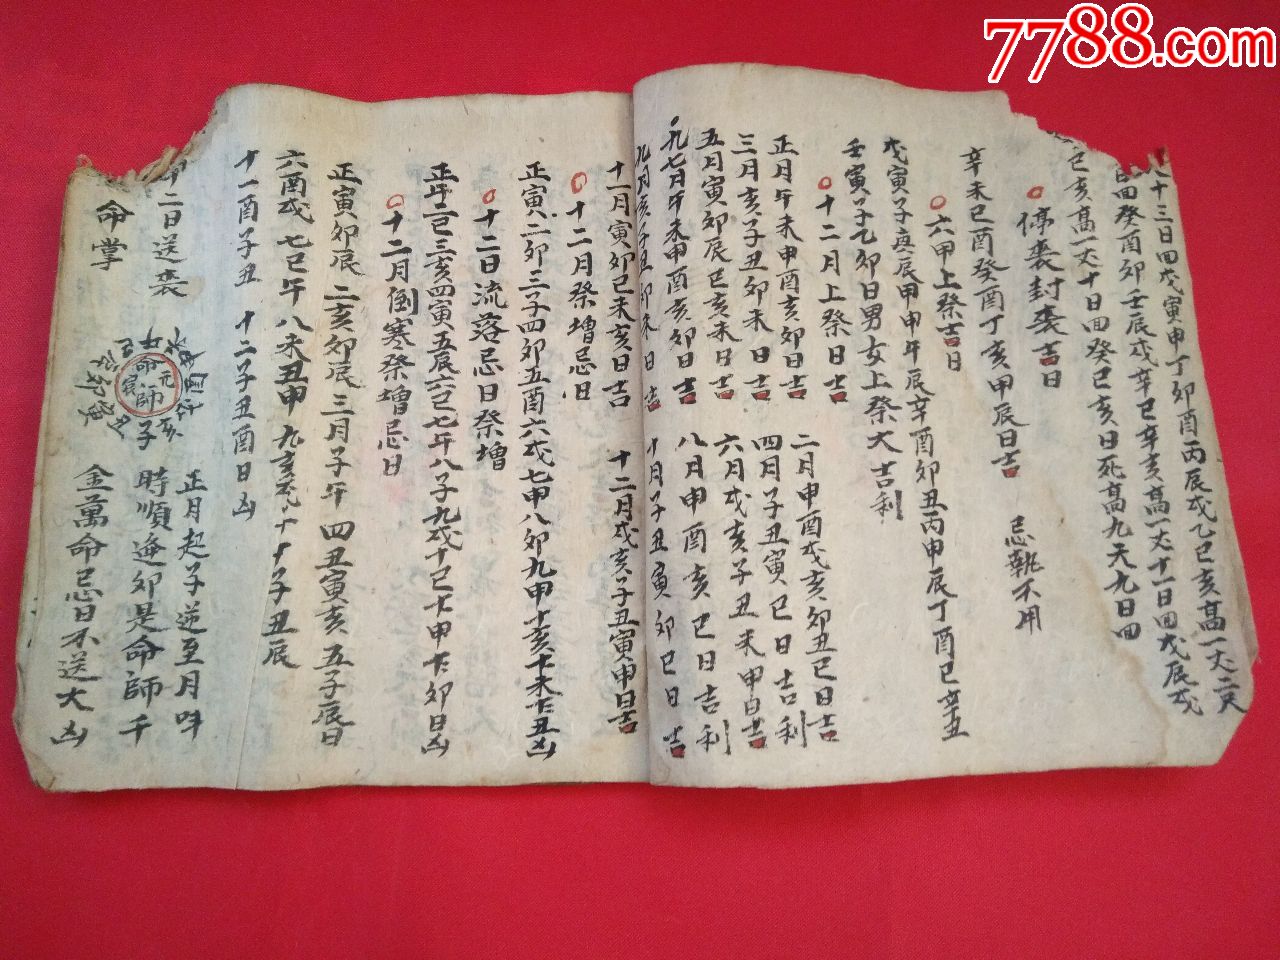 7788.com
十三日四戊寅申丁卯酉丙辰戌乙巳亥高一丈二天
四癸酉卯壬辰戌辛巳辛亥高一丈十一日四戊辰戌
己亥高一丈十日四癸巳亥日死高九天九日四
停丧封丧吉日
辛未己酉癸酉丁亥甲辰日吉 忌執不用
六甲上祭吉日
戊寅子庚辰甲申午辰辛酉卯丑丙申辰丁酉巳辛丑
壬寅子乙卯日男女上祭大吉利
十二月上祭日
正月午未申酉亥卯日吉 二月申酉戌亥卯丑巳日吉
三月亥子丑卯未日吉 四月子丑寅巳日吉利
五月寅卯辰巳亥未日吉 六月戌亥子丑未申日吉
七月午未申酉亥卯日吉 八月申酉亥巳日吉利
九月亥子丑卯未日吉 十月子丑寅卯巳日吉
十一月寅卯巳未亥日吉 十二月戌亥子丑寅申日吉
十二月祭增忌日
正寅二卯三子四卯五酉六戌七甲八卯九甲十亥十未丑凶
十二日流落忌日祭增
正午二巳三亥四寅五辰六巳七午八子九戌十巳十甲卯日凶
十二月倒寒祭增忌日
正寅卯辰 二亥卯辰 三月子午 四丑寅亥 五子辰日
六酉戌 七巳午 八未丑申 九亥戌 十子丑辰
十一酉子丑 十二子丑酉日凶
二日送丧
命掌
命師
子
正月起子逆至月
時順逢卯是命師千
金萬命忌日不送大凶